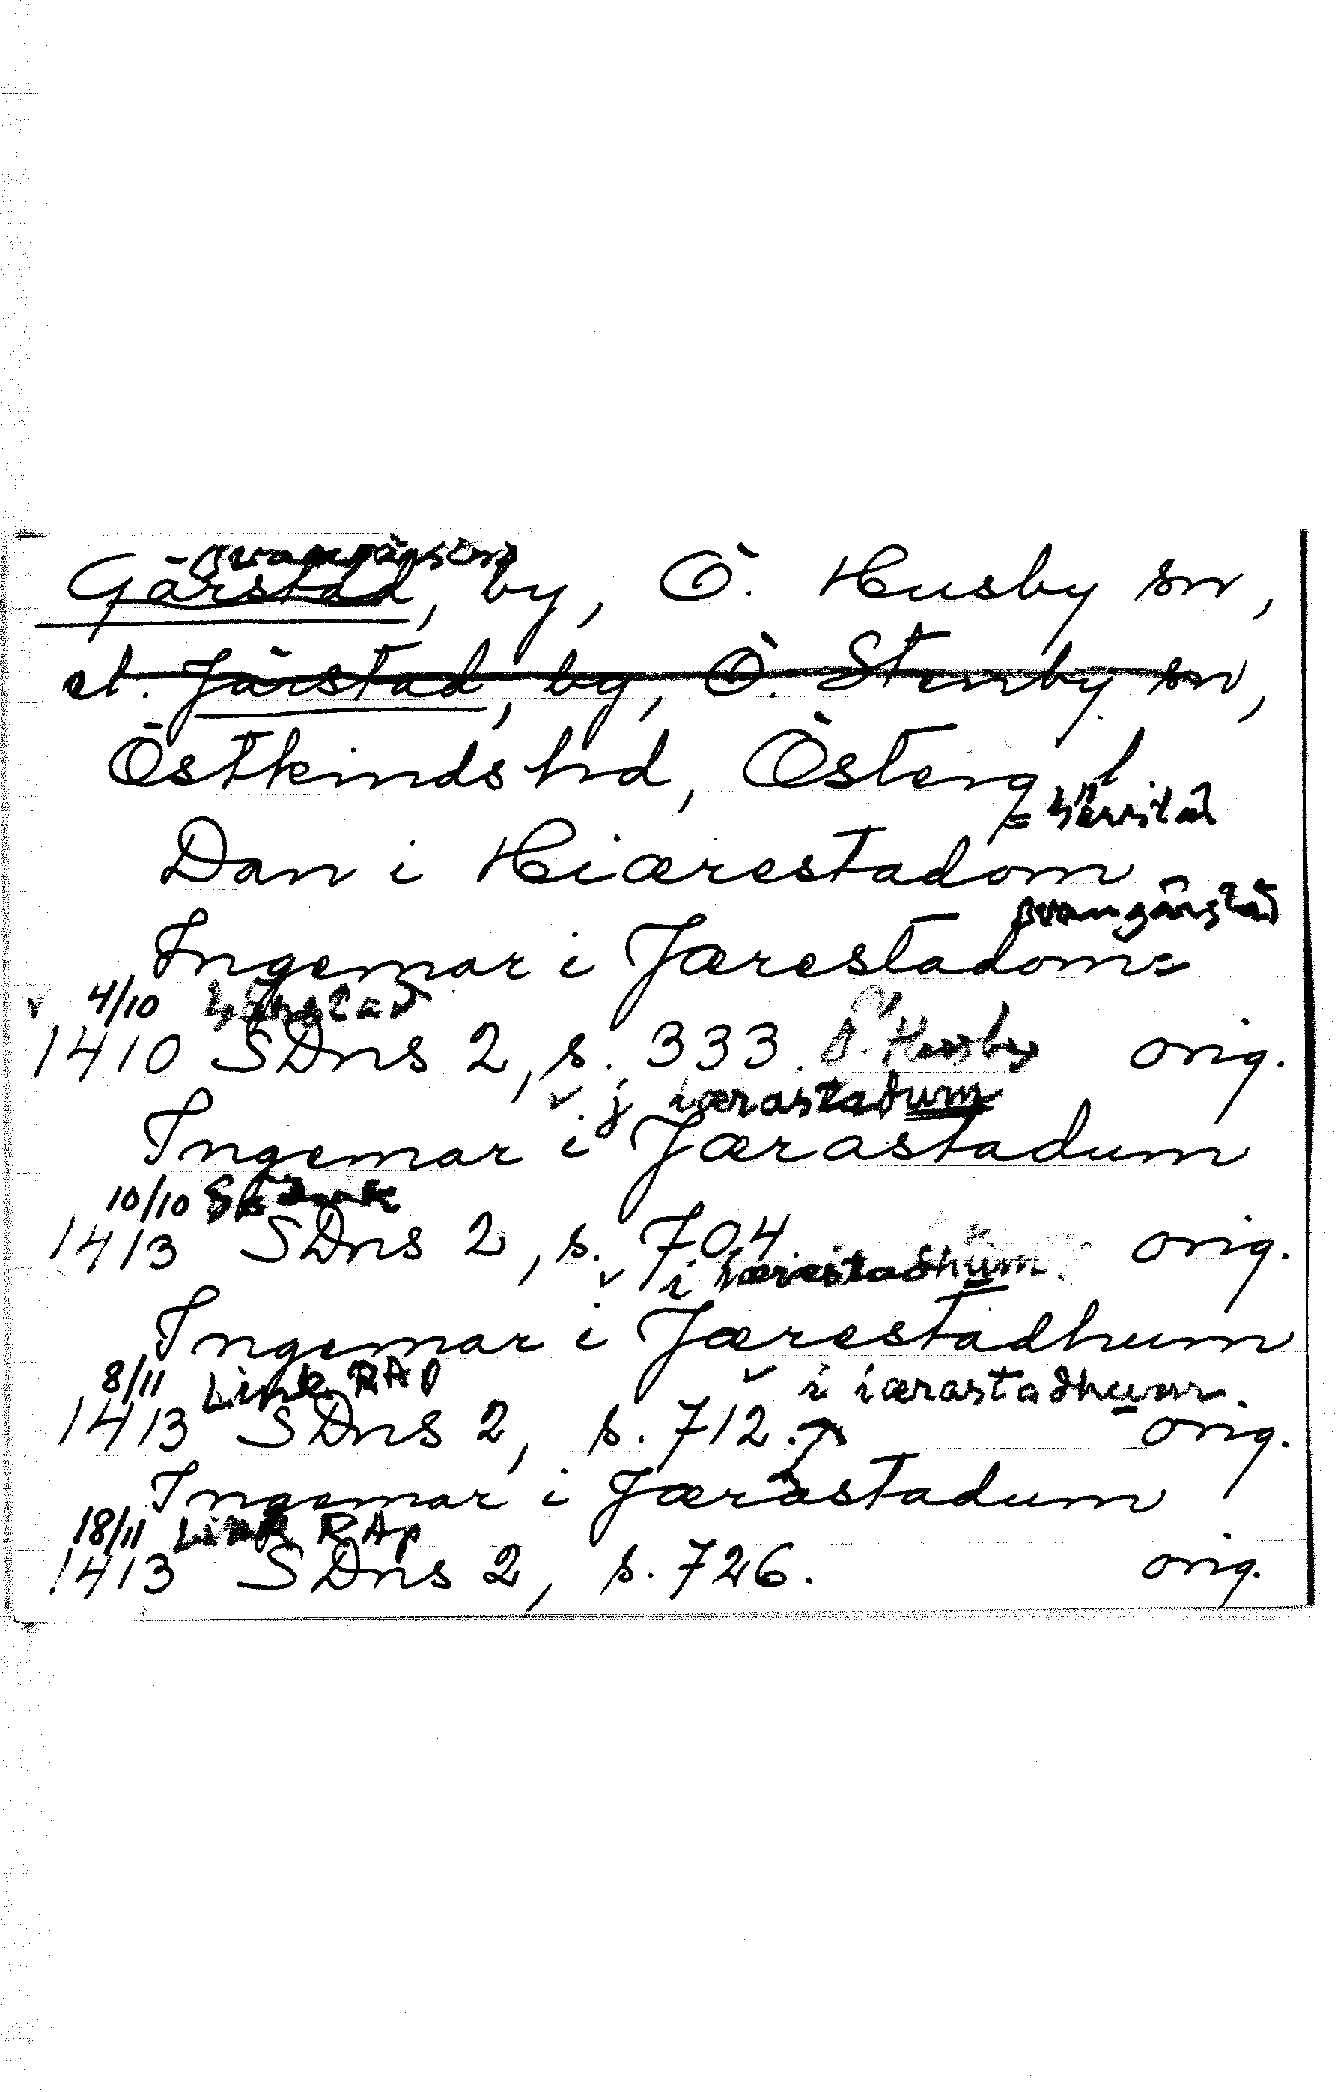 Svangärstad
Gärstad, by, Ö. Husby sn,
el. Järstad, by, Ö. Stenby sn,
Östkinds hd, Österg
Dan i Hiærestadom
Svangärstad
Ingemar i Jærestadom
4/10
1410 SDns 2, s. 333. Ö. Husby orig.
v j iærastadum
Ingemar i Jærastadum
10/10
1413 SDns 2, s. 704 orig.
v i Iærestadhum
Ingemar i Jærestadhum
8/11 Link RAp v i iærastadhum.
1413 SDns 2, s. 712. orig.
Ingemar i Jærastadum
18/11 Link RAp
1413 SDns 2, s. 726. orig.